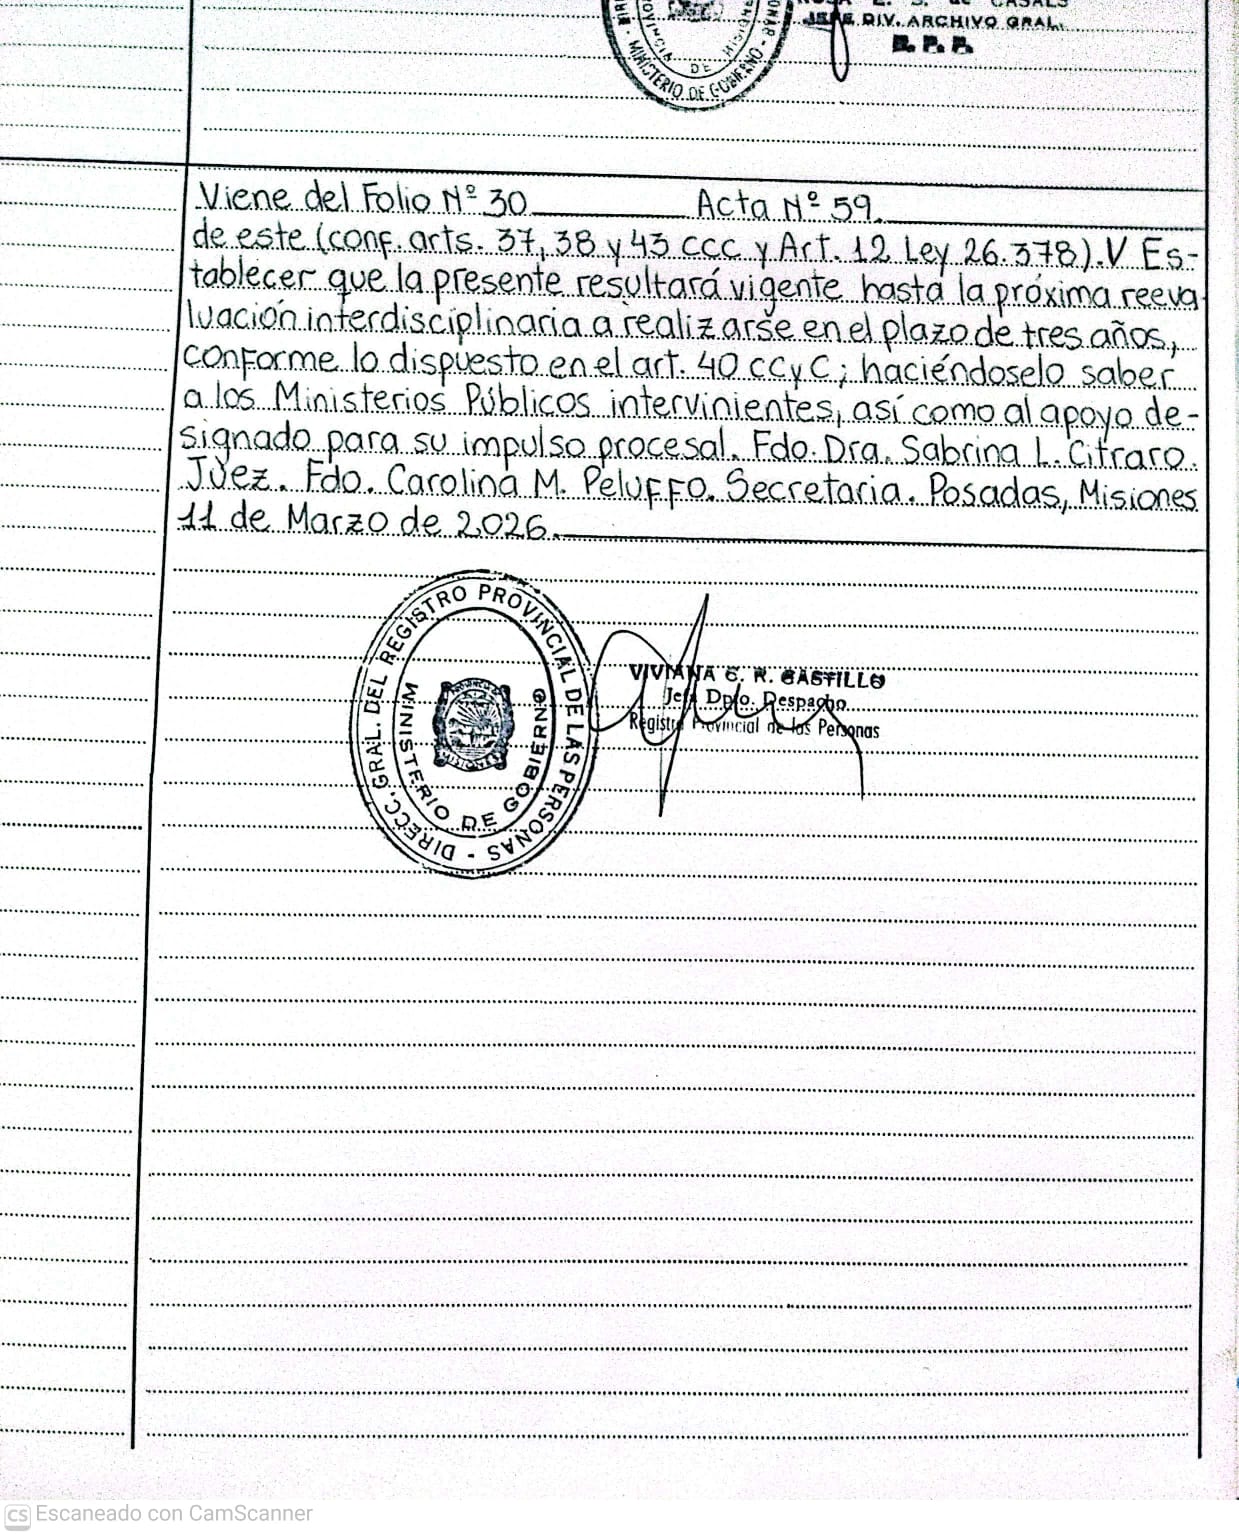 CASALS
JEFE DIV. ARCHIVO GRAL.
R. P. P.
MINISTERIO DE GOBIERNO
Viene del Folio Nº 30 Acta Nº 59.
de este (conf. arts. 37, 38 y 43 CCC y Art. 12 Ley 26.378). V Es-
tablecer que la presente resultará vigente hasta la próxima reeva-
luación interdisciplinaria a realizarse en el plazo de tres años,
conforme lo dispuesto en el art. 40 CCyC; haciéndoselo saber
a los Ministerios Públicos intervinientes, así como al apoyo de-
signado para su impulso procesal. Fdo. Dra. Sabrina L. Citraro.
Juez. Fdo. Carolina M. Peluffo. Secretaria. Posadas, Misiones
11 de Marzo de 2026.
DIRECC. GRAL. DEL REGISTRO PROVINCIAL DE LAS PERSONAS -
MINISTERIO DE GOBIERNO
MISIONES
VIVIANA E. R. CASTILLO
Jefa Dpto. Despacho
Registro Provincial de las Personas
CS Escaneado con CamScanner